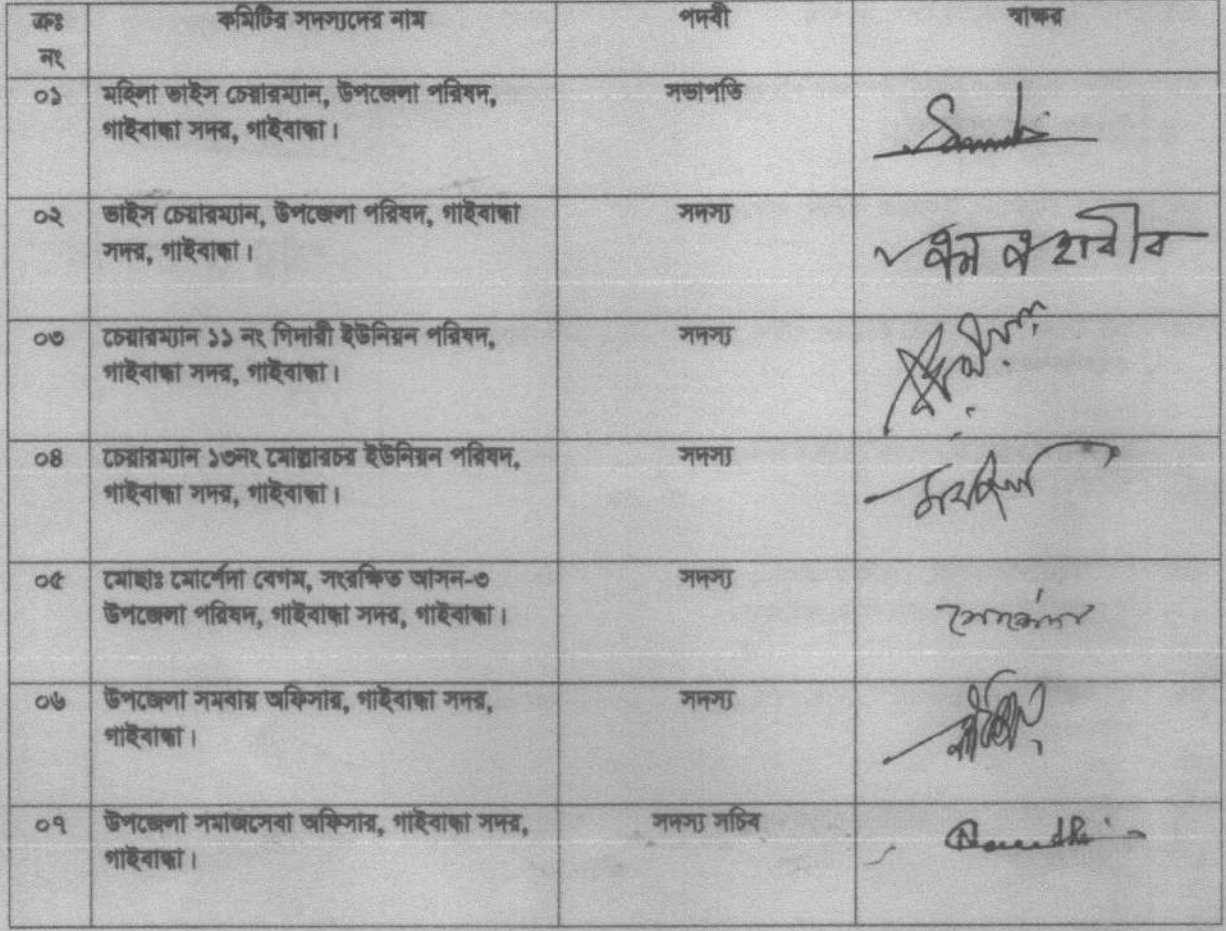 ক্রঃ নং কমিটির সদস্যদের নাম পদবী স্বাক্ষর
০১ মহিলা ভাইস চেয়ারম্যান, উপজেলা পরিষদ, সভাপতি
গাইবান্ধা সদর, গাইবান্ধা।
০২ ভাইস চেয়ারম্যান, উপজেলা পরিষদ, গাইবান্ধা সদস্য
সদর, গাইবান্ধা।
০৩ চেয়ারম্যান ১১ নং গিদারী ইউনিয়ন পরিষদ, সদস্য
গাইবান্ধা সদর, গাইবান্ধা।
০৪ চেয়ারম্যান ১৩নং মোল্লারচর ইউনিয়ন পরিষদ, সদস্য
গাইবান্ধা সদর, গাইবান্ধা।
০৫ মোছাঃ মোর্শেদা বেগম, সংরক্ষিত আসন-৩ সদস্য
উপজেলা পরিষদ, গাইবান্ধা সদর, গাইবান্ধা।
০৬ উপজেলা সমবায় অফিসার, গাইবান্ধা সদর, সদস্য
গাইবান্ধা।
০৭ উপজেলা সমাজসেবা অফিসার, গাইবান্ধা সদর, সদস্য সচিব
গাইবান্ধা।